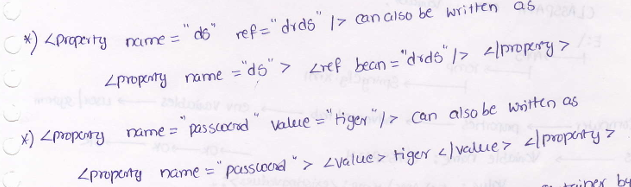 *) <property name = "ds" ref = "drds" /> can also be written as
<property name = "ds"> <ref bean = "drds" /> </property>
*) <property name = "password" value = "tiger" /> can also be written as
<property name = "password"> <value> tiger </value> </property>
by